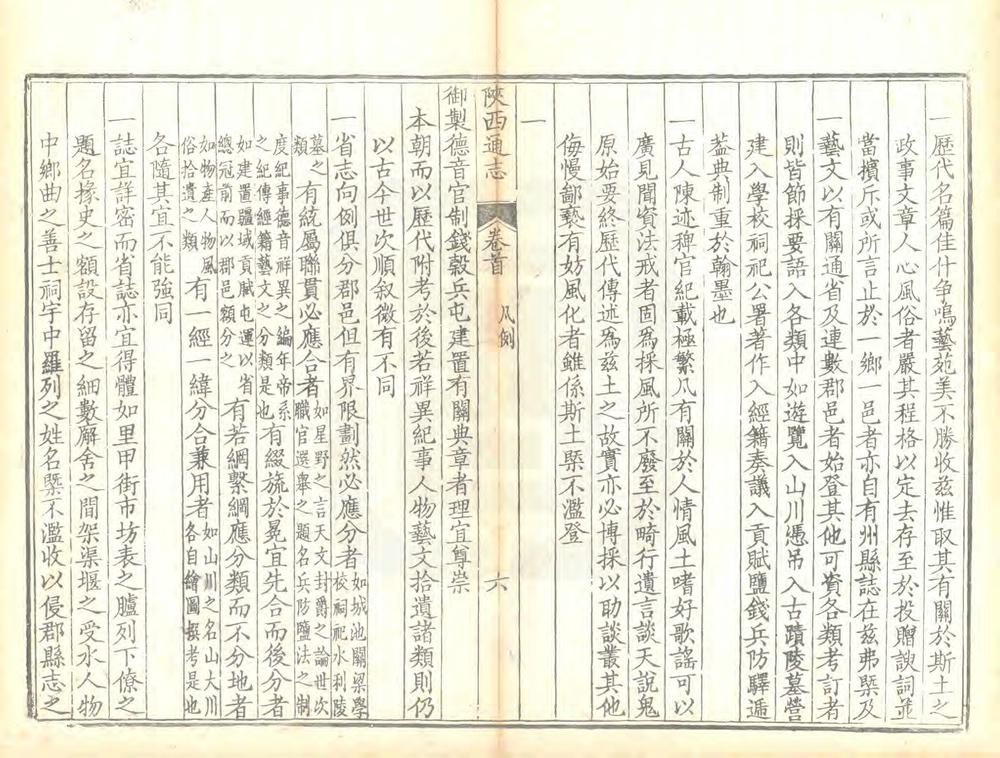 一歷代名篇佳什爭鳴藝苑美不勝收兹惟取其有關於斯土之
政事文章人心風俗者嚴其程格以定去存至於投贈諛詞並
當擯斥或所言止於一鄉一邑者亦自有州縣誌在兹弗槩及
一藝文以有關通省及連數郡邑者始登其他可資各類考訂者
則皆節採要語入各類中如遊覽入山川憑吊入古蹟陵墓營
建入學校祠祀公署著作入經籍奏議入貢賦鹽錢兵防驛遞
葢典制重於翰墨也
一古人陳迹稗官紀載極繁凡有關於人情風土嗜好歌謠可以
廣見聞資法戒者固爲採風所不廢至於畸行遺言談天說鬼
原始要終歷代傳述爲兹土之故實亦必博採以助談叢其他
侮慢鄙褻有妨風化者雖係斯土槩不濫登
一
陝西通志 卷首 凡例 六
御製德音官制錢穀兵屯建置有關典章者理宜尊崇
本朝而以歷代附考於後若祥異紀事人物藝文拾遺諸類則仍
以古今世次順叙微有不同
一省志向例俱分郡邑但有界限劃然必應分者如城池關梁學校祠祀水利陵
墓之類有統屬聯貫必應合者如星野之言天文封爵之論世次職官選舉之題名兵防鹽法之制
度紀事德音祥異之編年帝系之紀傳經籍藝文之分類是也有綴旒於冕宜先合而後分者
如建置疆域貢賦屯運以省總冠前而以郡邑額分之有若網繫綱應分類而不分地者
如物產人物風俗拾遺之類有一經一緯分合兼用者如山川之名山大川各自繪圖考是也
各隨其宜不能強同
一誌宜詳密而省誌亦宜得體如里甲街市坊表之臚列下僚之
題名掾史之額設存留之細數廨舍之間架渠堰之受水人物
中鄉曲之善士祠宇中羅列之姓名槩不濫收以侵郡縣志之